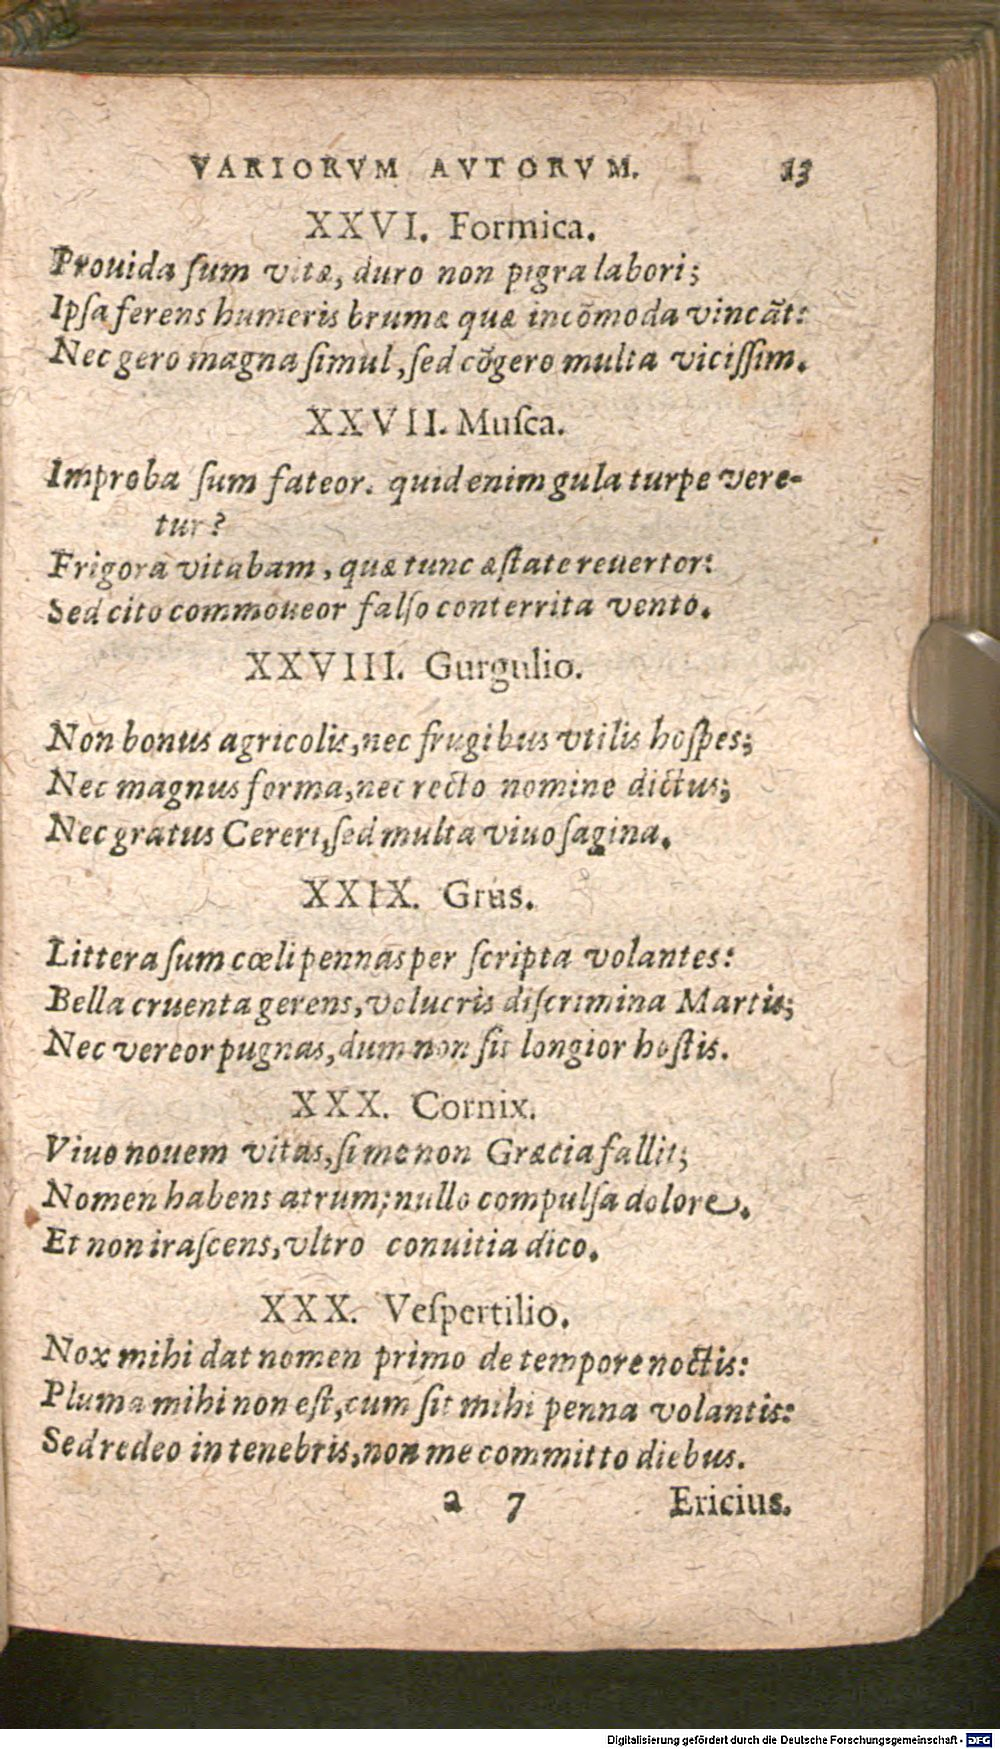 VARIORVM AVTORVM. 13
XXVI. Formica.
Prouida ſum vitæ, duro non pigra labori;
Ipſa ferens humeris brumæ quæ incõmoda vincãt:
Nec gero magna ſimul, ſed cõgero multa viciſſim.
XXVII. Muſca.
Improba ſum fateor. quid enim gula turpe vere-
tur?
Frigora vitabam, quæ tunc æſtate reuertor:
Sed cito commoueor falſo conterrita vento.
XXVIII. Gurgulio.
Non bonus agricolis, nec frugibus vtilis hoſpes;
Nec magnus forma, nec recto nomine dictus;
Nec gratus Cereri, ſed multa viuo ſagina.
XXIX. Grus.
Littera ſum cœli pennas per ſcripta volantes:
Bella cruenta gerens, volucris diſcrimina Martis;
Nec vereor pugnas, dum non ſit longior hoſtis.
XXX. Cornix.
Viuo nouem vitas, ſi me non Græcia fallit;
Nomen habens atrum; nullo compulſa dolore.
Et non iraſcens, vltro conuitia dico.
XXX. Veſpertilio.
Nox mihi dat nomen primo de tempore noctis:
Pluma mihi non eſt, cum ſit mihi penna volantis:
Sed redeo in tenebris, non me committo diebus.
a 7 Ericius.
Digitalisierung gefördert durch die Deutsche Forschungsgemeinschaft - DFG